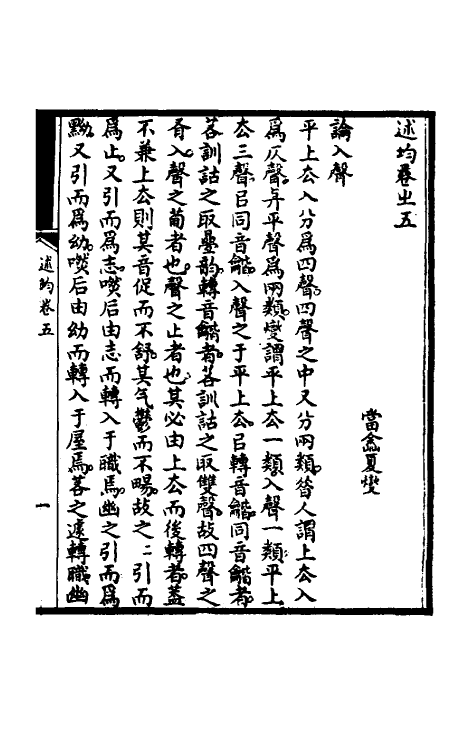 述均卷之五
當涂夏燮
論入聲
平上厺入分爲四聲四聲之中又分兩類昝人謂上厺入
爲仄聲與平聲爲兩類燮謂平上厺一類入聲一類平上
厺三聲㠯同音龤入聲之于平上厺㠯轉音龤同音龤者
若訓詁之取疊韵轉音龤者若訓詁之取雙聲故四聲之
有入聲之萄者也聲之止者也其必由上厺而後轉者葢
不兼上厺則其音促而不舒其气鬱而不暢故之二引而
爲止又引而爲志㬗后由志而轉入于職焉幽之引而爲
黝又引而爲幼㬗后由幼而轉入于屋焉若之遽轉職幽
述均卷五
一